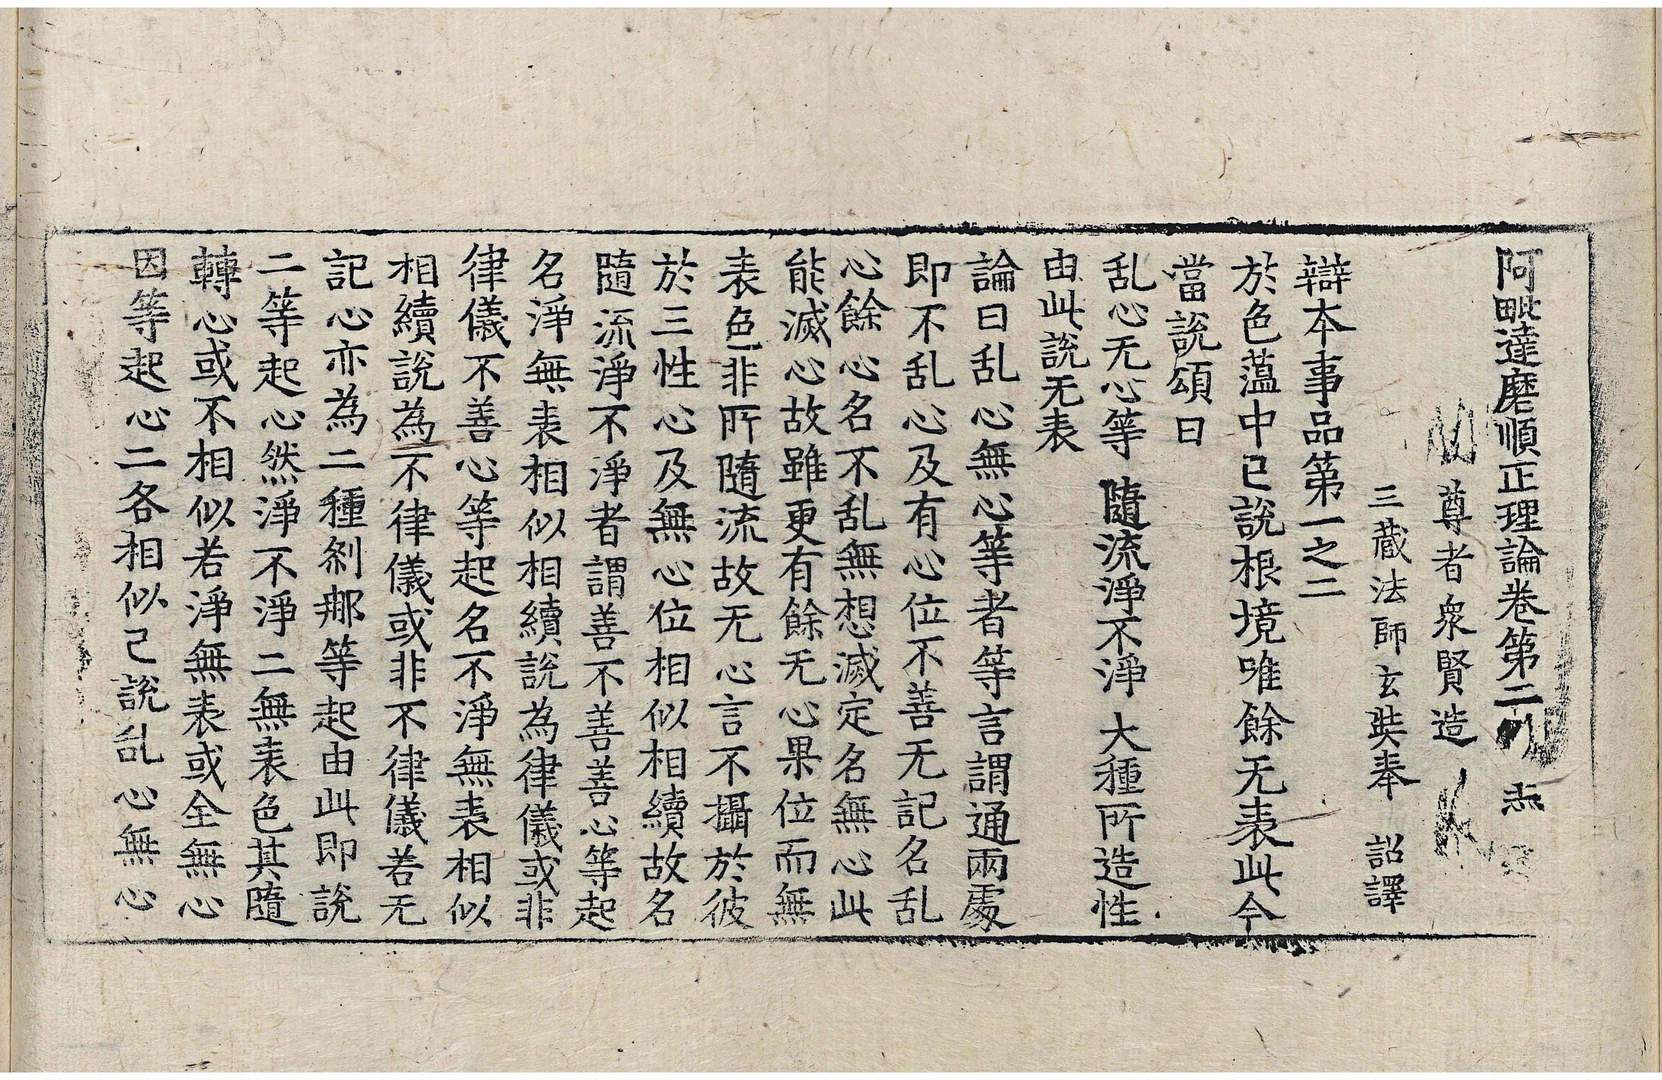 阿毗達磨順正理論卷第二
尊者衆賢造
三藏法師玄奘奉 詔譯
辯本事品第一之二
於色薀中已說根境唯餘无表此今
當說頌曰
乱心无心等 隨流淨不淨 大種所造性
由此說无表
論曰乱心無心等者等言謂通兩處
即不乱心及有心位不善无記名乱
心餘心名不乱無想滅定名無心此
能滅心故雖更有餘无心果位而無
表色非所隨流故无心言不攝於彼
於三性心及無心位相似相續故名
隨流淨不淨者謂善不善善心等起
名淨無表相似相續說為律儀或非
律儀不善心等起名不淨無表相似
相續說為不律儀或非不律儀若无
記心亦為二種剎那等起由此即說
二等起心然淨不淨二無表色其隨
轉心或不相似若淨無表或全無心
因等起心二各相似已說乱心無心